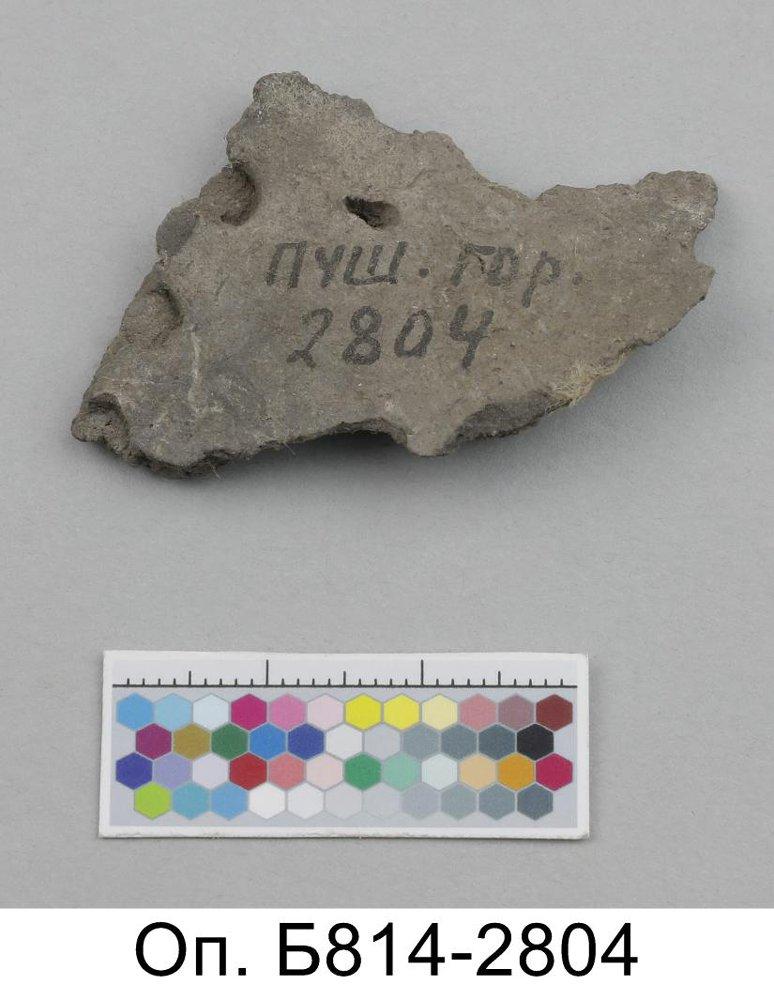 ПУШ. ГОР.
2804
Оп. Б814-2804